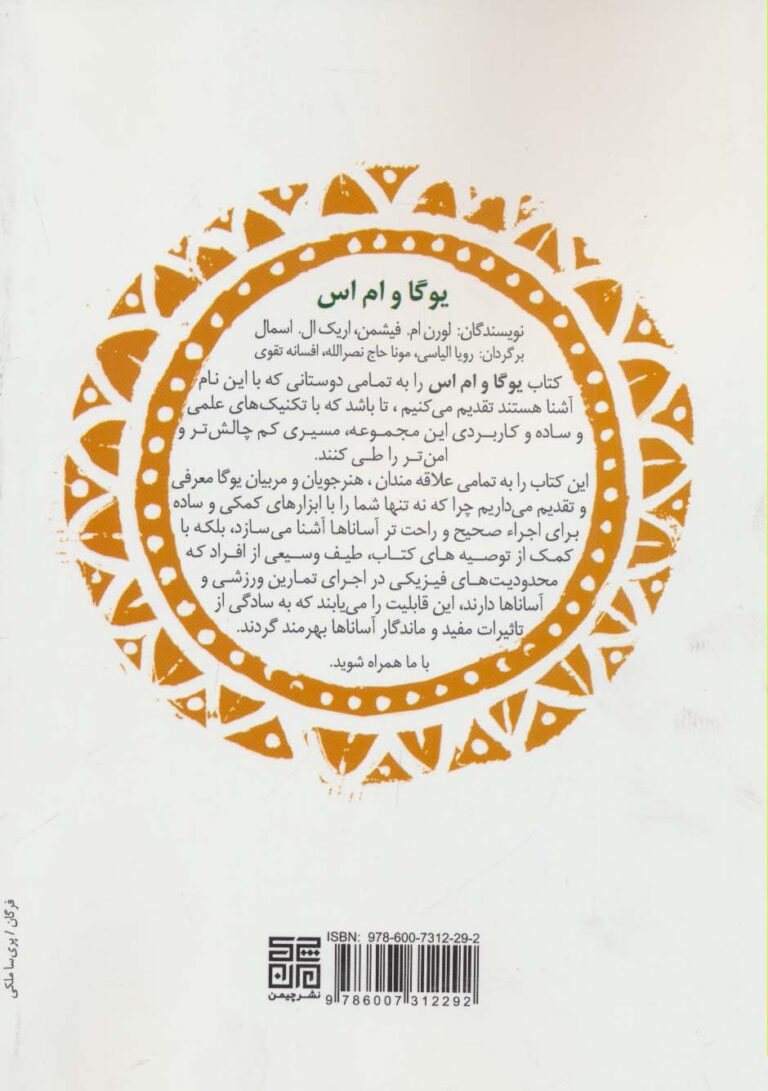 یوگا و ام اس
نویسندگان: لورن ام. فیشمن، اریک ال. اسمال
برگردان: رویا الیاسی، مونا حاج نصرالله، افسانه تقوی
کتاب یوگا و ام اس را به تمامی دوستانی که با این نام
آشنا هستند تقدیم می‌کنیم ، تا باشد که با تکنیک‌های علمی
و ساده و کاربردی این مجموعه، مسیری کم چالش‌تر و
امن‌تر را طی کنند.
این کتاب را به تمامی علاقه مندان ، هنرجویان و مربیان یوگا معرفی
و تقدیم می‌داریم چرا که نه تنها شما را با ابزارهای کمکی و ساده
برای اجراء صحیح و راحت تر آساناها آشنا می‌سازد، بلکه با
کمک از توصیه های کتاب، طیف وسیعی از افراد که
محدودیت‌های فیزیکی در اجرای تمارین ورزشی و
آساناها دارند، این قابلیت را می‌یابند که به سادگی از
تاثیرات مفید و ماندگار آساناها بهرمند گردند.
با ما همراه شوید.
فرگان / پری‌سا ملکی
ISBN: 978-600-7312-29-2
9 786007 312292
نشر چیمن